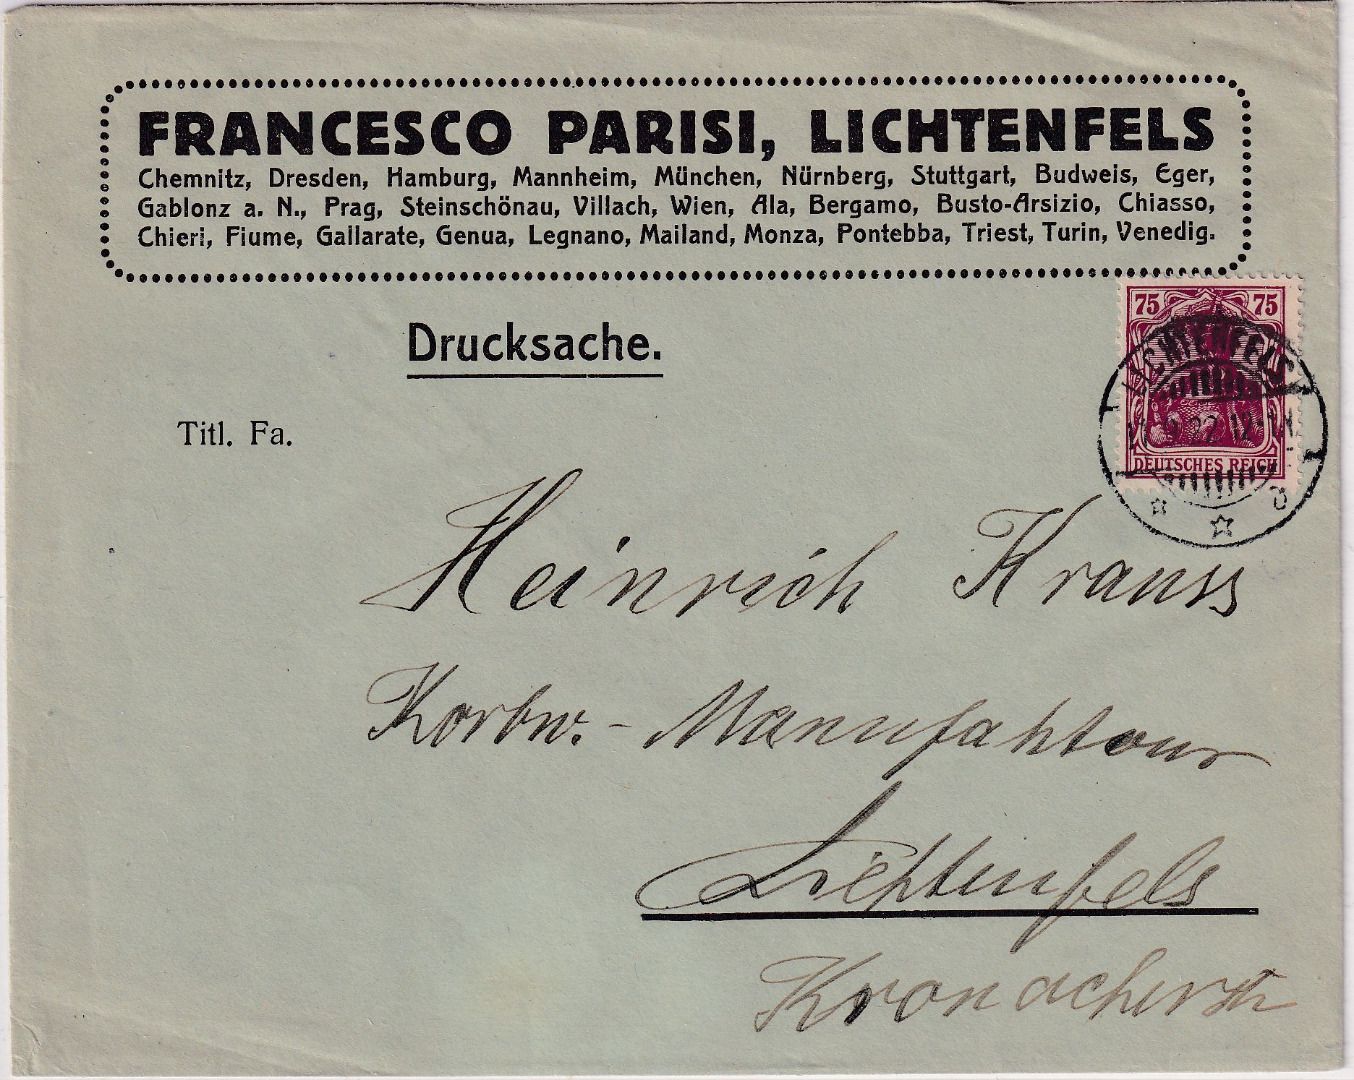 FRANCESCO PARISI, LICHTENFELS
Chemnitz, Dresden, Hamburg, Mannheim, München, Nürnberg, Stuttgart, Budweis, Eger,
Gablonz a. N., Prag, Steinschönau, Villach, Wien, Ala, Bergamo, Busto-Arsizio, Chiasso,
Chieri, Fiume, Gallarate, Genua, Legnano, Mailand, Monza, Pontebba, Triest, Turin, Venedig.
75 75
LICHTENFELS
DEUTSCHES REICH
Drucksache.
Titl. Fa.
Heinrich Krauss
Korbw.-Manufaktour
Lichtenfels
Kronacherstr